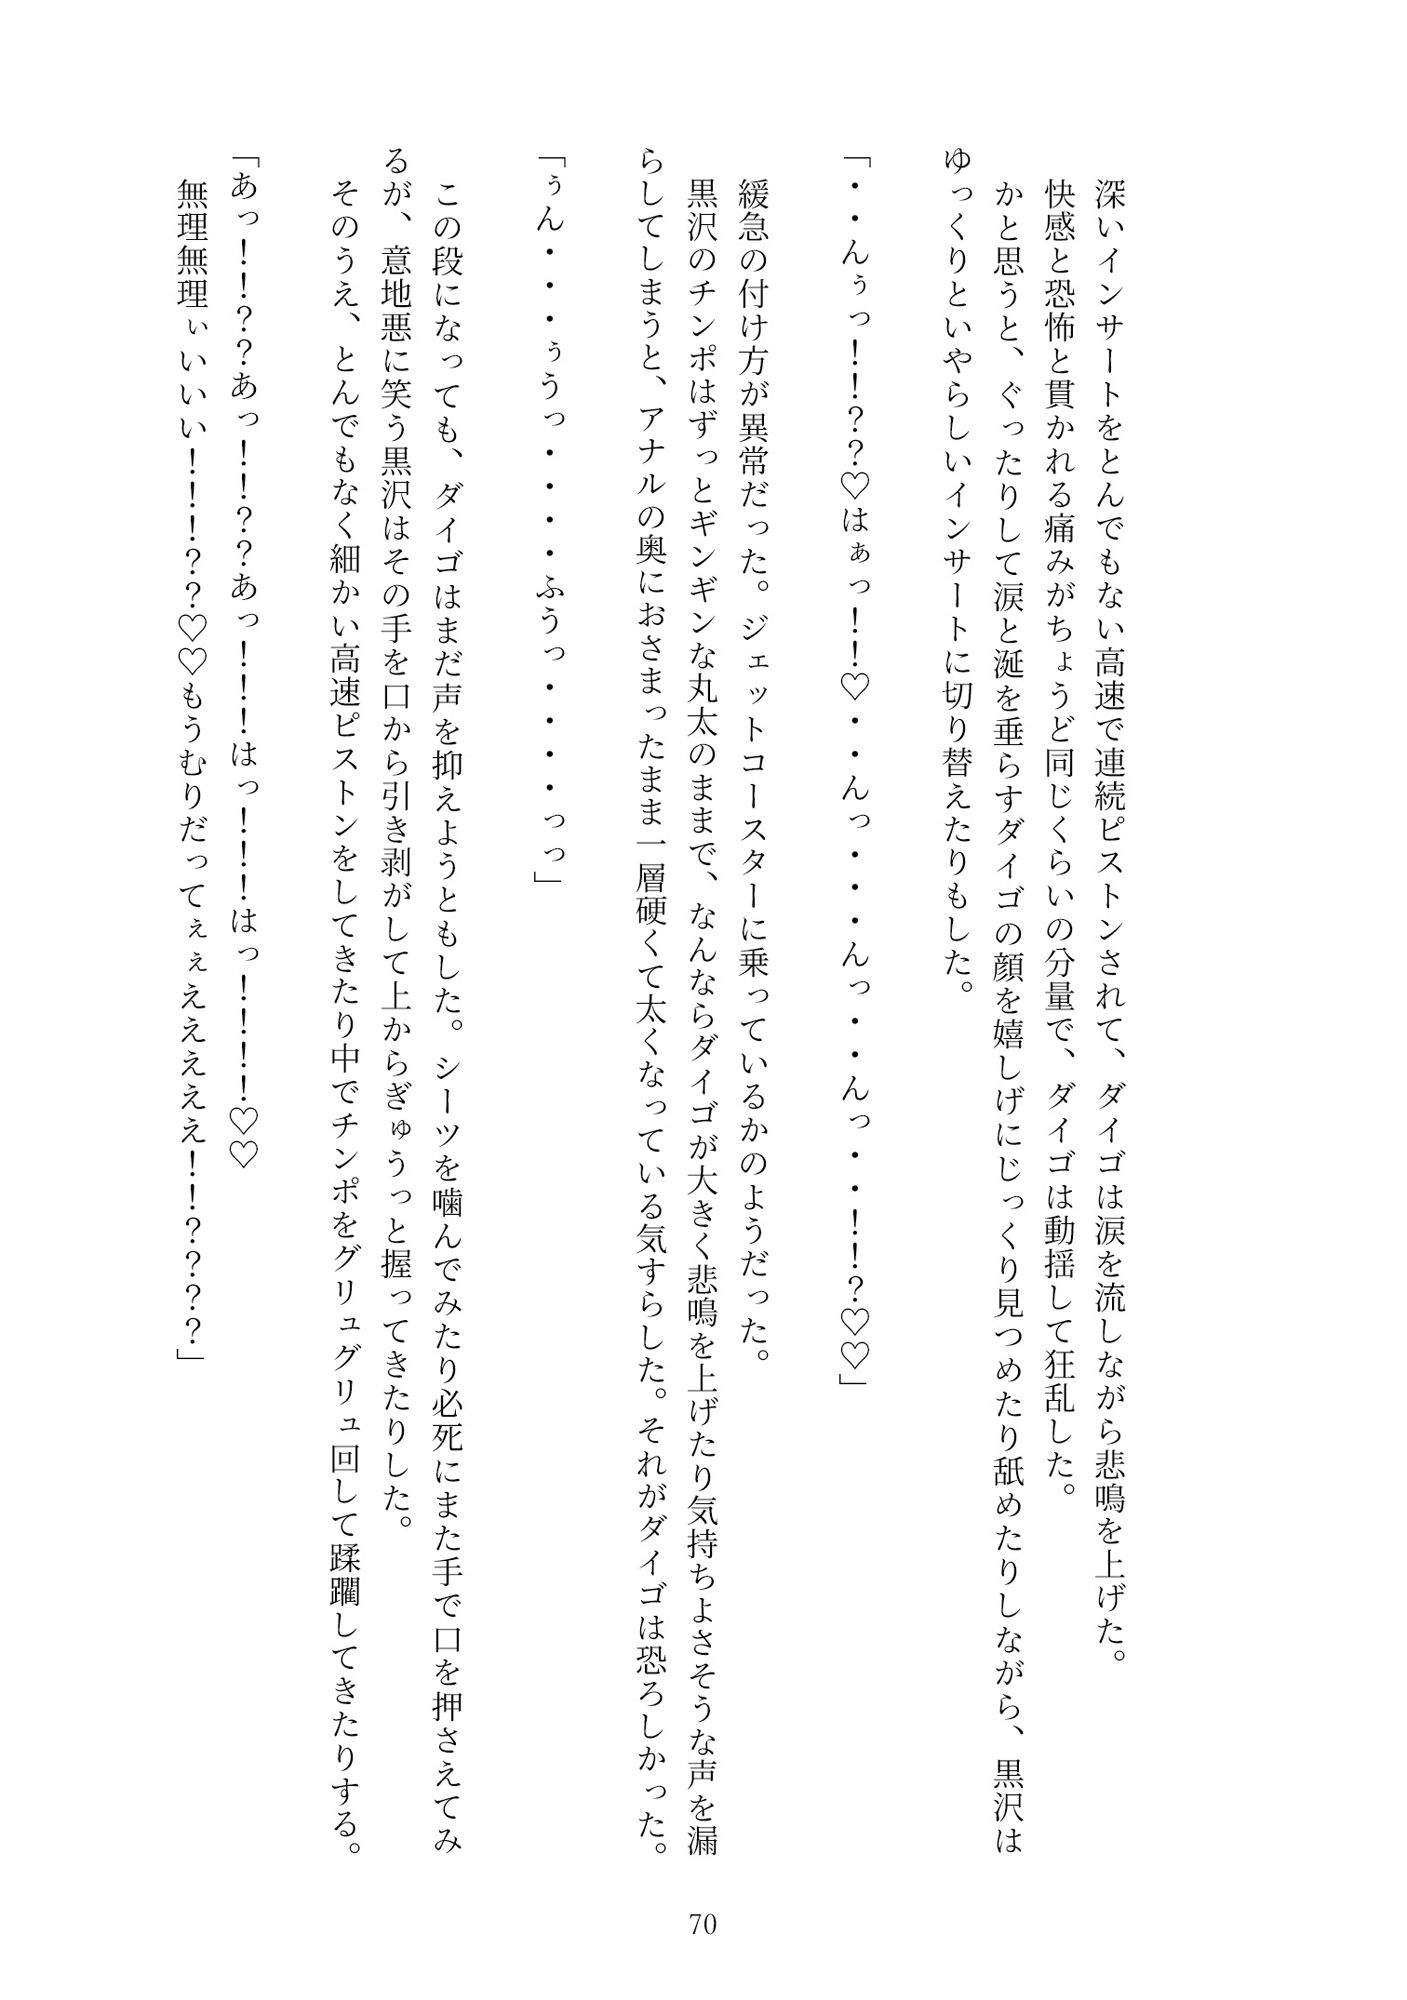 深いインサートをとんでもない高速で連続ピストンされて、ダイゴは涙を流しながら悲鳴を上げた。
快感と恐怖と貫かれる痛みがちょうど同じくらいの分量で、ダイゴは動揺して狂乱した。
かと思うと、ぐったりして涙と涎を垂らすダイゴの顔を嬉しげにじっくり見つめたり舐めたりしながら、黒沢は
ゆっくりといやらしいインサートに切り替えたりもした。
「・・んぅっ！！？？♡はぁっ！！♡・・んっ・・・んっ・・んっ・・！！？♡♡」
緩急の付け方が異常だった。ジェットコースターに乗っているかのようだった。
黒沢のチンポはずっとギンギンな丸太のままで、なんならダイゴが大きく悲鳴を上げたり気持ちよさそうな声を漏
らしてしまうと、アナルの奥におさまったまま一層硬くて太くなっている気すらした。それがダイゴは恐ろしかった。
「ぅん・・・ぅうっ・・・・ふうっ・・・・っっ」
この段になっても、ダイゴはまだ声を抑えようともした。シーツを噛んでみたり必死にまた手で口を押さえてみ
るが、意地悪に笑う黒沢はその手を口から引き剥がして上からぎゅうっと握ってきたりした。
そのうえ、とんでもなく細かい高速ピストンをしてきたり中でチンポをグリュグリュ回して蹂躙してきたりする。
「あっ！！？？あっ！！？？あっ！！！はっ！！！はっ！！！！♡♡
無理無理ぃいいい！！！？？♡♡もうむりだってぇぇええええ！！？？？？」
70